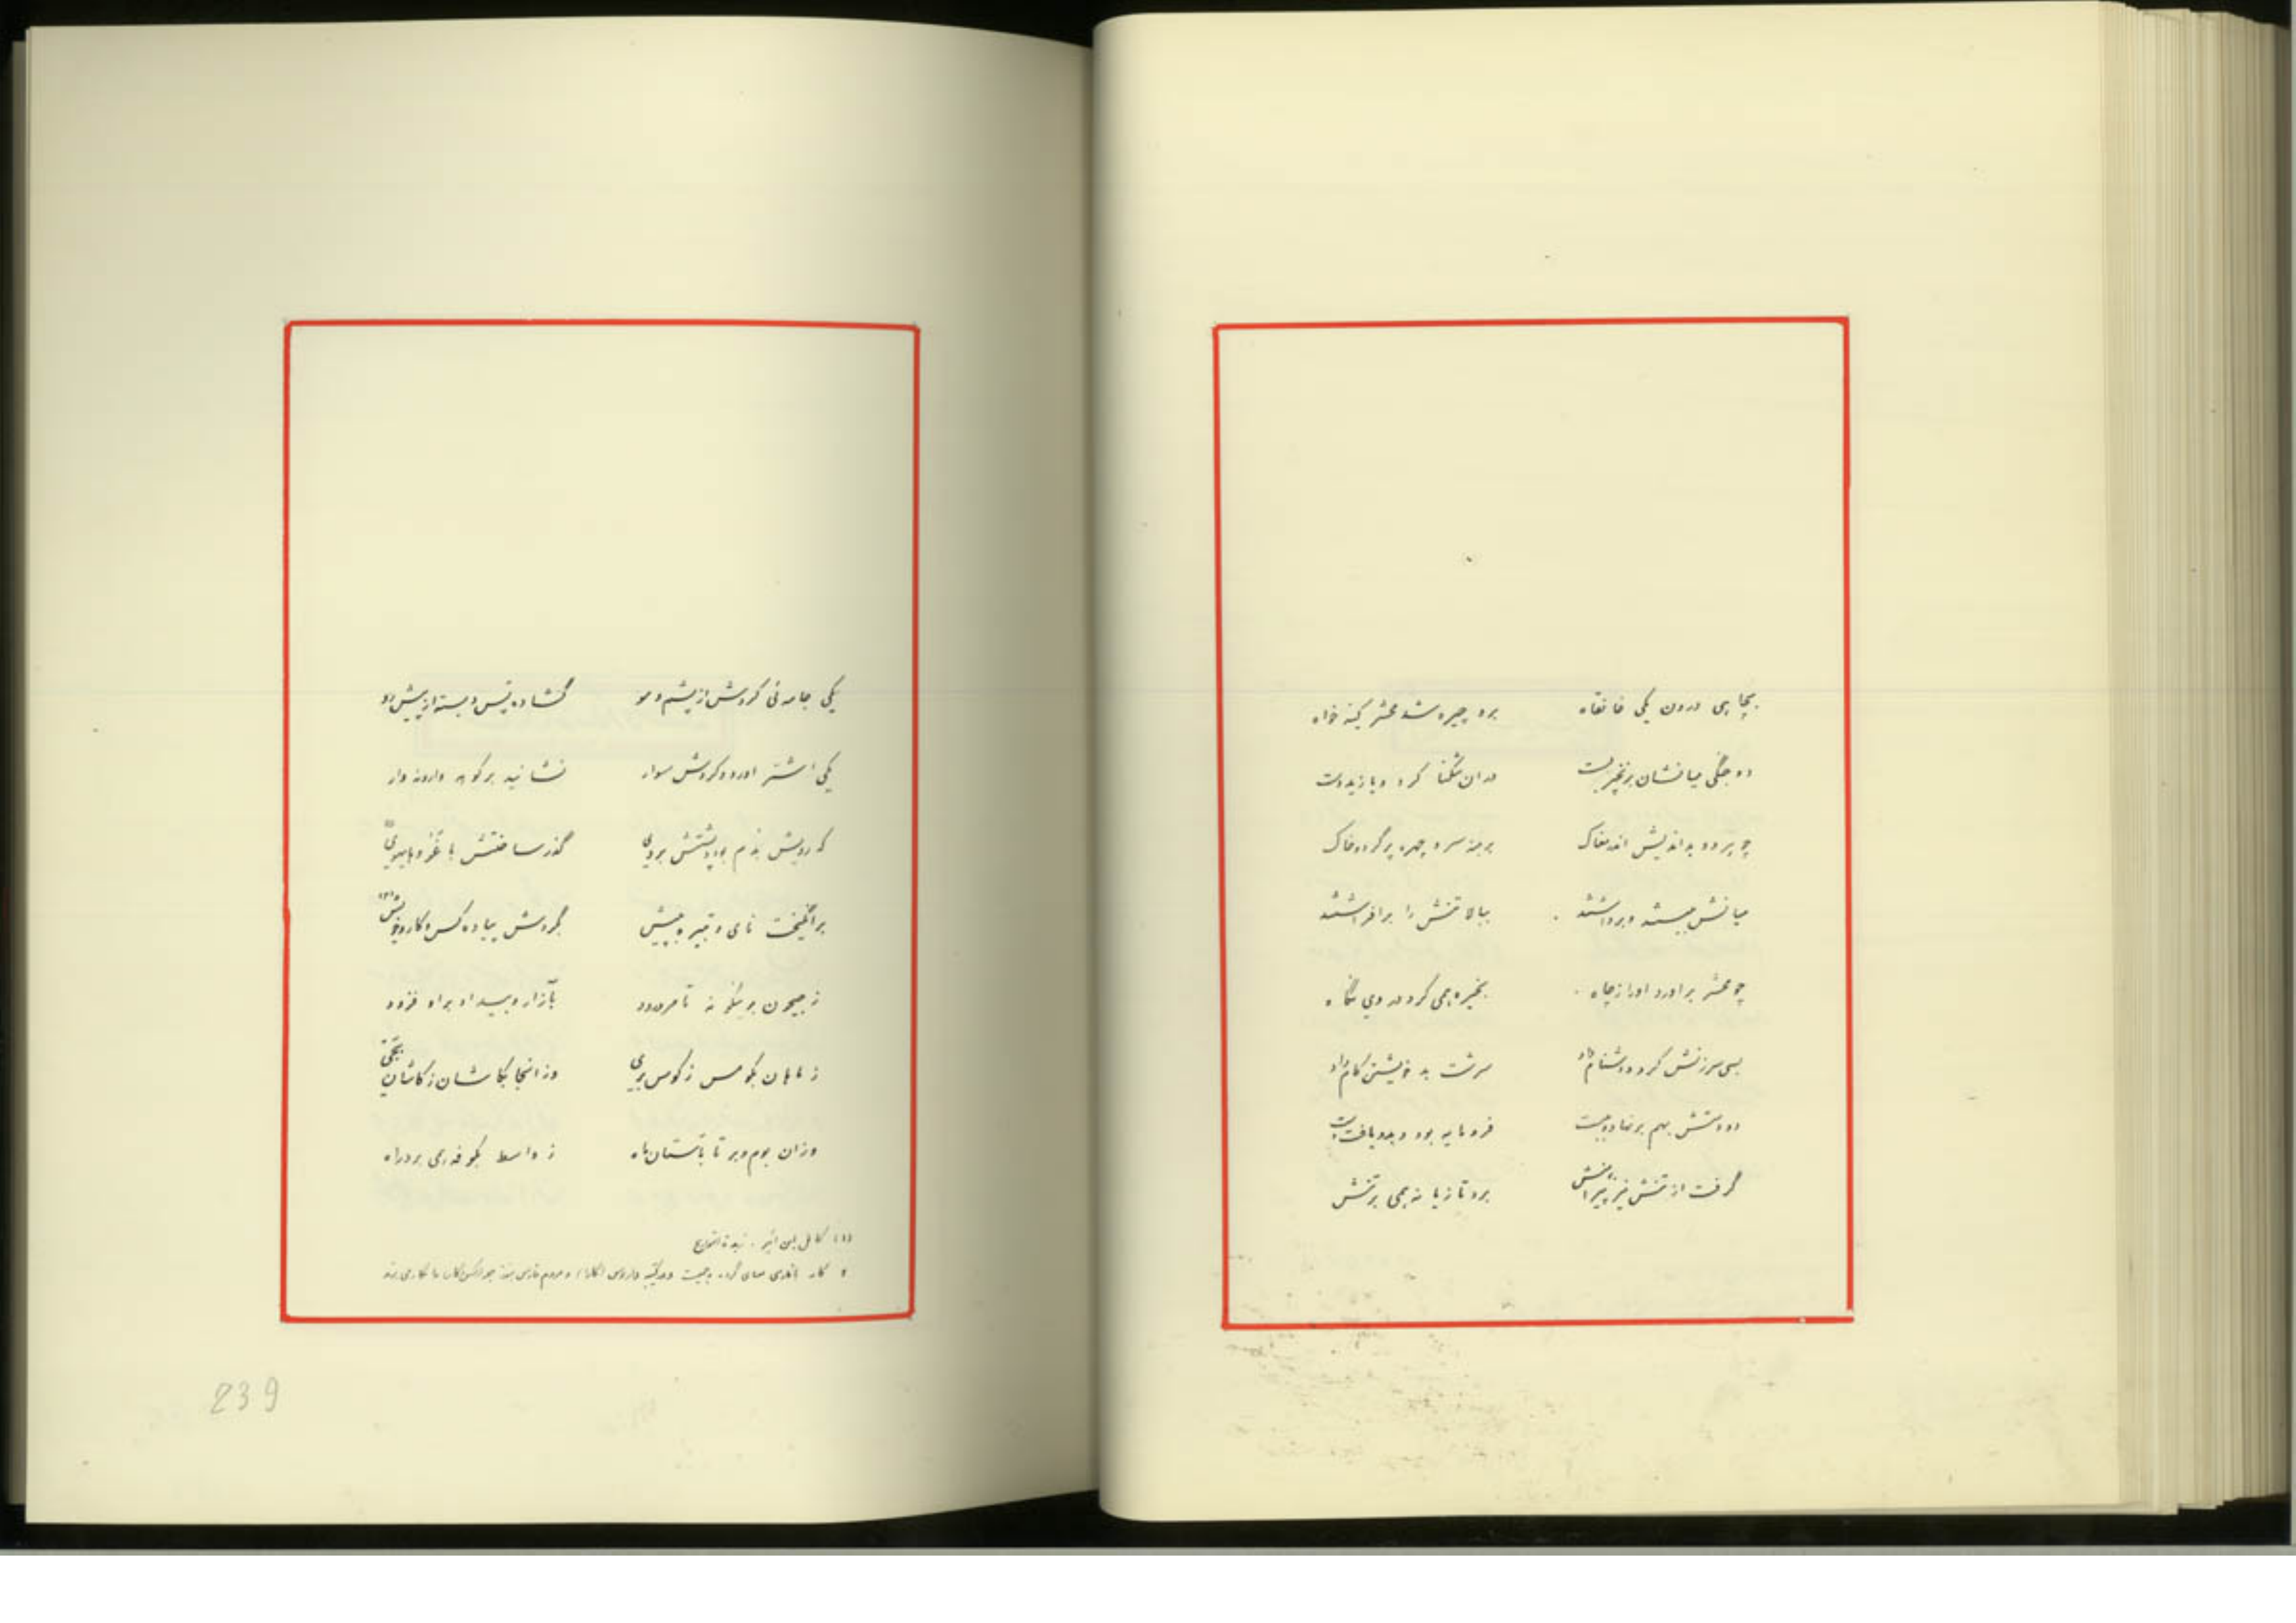 بچاهی درون یکی خانقاه برو چیره شد عشر کینه خواه
دو جنگی میانشان بزنجیر بست دران تنگنا کرد و یازید دست
چو بر دو بداندیش اندر مغاک برهنه سر و چهره پر گرد و خاک
میانش ببستند و برداشتند ببالا تنش را برافراشتند
چو عشر برآورد او را ز چاه بخیره همی کرد در وی نگاه
بسی سرزنش کرد و دشنام داد سرشت بد خویشتن کام داد
دو دستش بهم بر نهاد و ببست فرومایه بود و بدو یافت دست
گرفت از تنش نیز پیراهنش برد تازیانه همی بر تنش
یکی جامه نی کردش از پشم و مو گشاده ز پس و بسته از پیش رو
یکی اشتر آورد و کردش سوار نشانید بر کوهه وارونه وار
که رویش بدم بود و پشتش بروی گذر ساختش با غو و هایهوی
برانگیخت نای و تبیره به پیش بگردش پیاده کس و کار خویش
ز جیحون برینگونه تا مرورود بآزار و بیداد براه فزود
ز ماهان بکومس ز کومس بری وز آنجا بکاشان ز کاشان بجی
وزان بوم و بر تا باستان ماه ز واسط بکوفه همی برد راه
(۱) کامل ابن اثیر . زبدة التواریخ
239